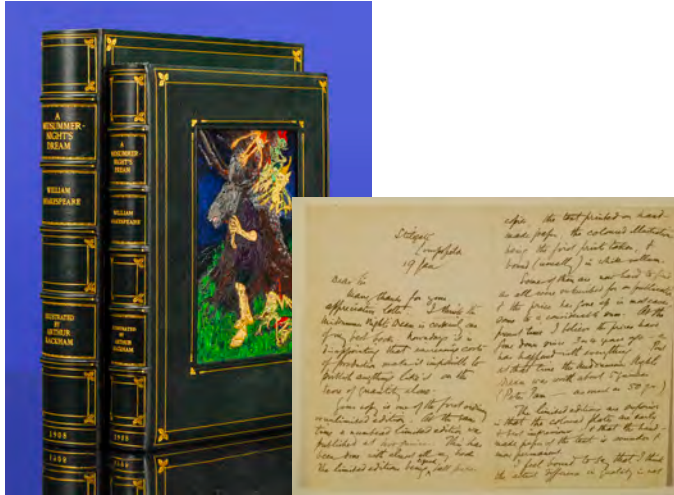 A
MIDSUMMER-
NIGHT'S
DREAM
WILLIAM
SHAKESPEARE
ILLUSTRATED
BY
ARTHUR
RACKHAM
1908
A
MIDSUMMER-
NIGHT'S
DREAM
WILLIAM
SHAKESPEARE
ILLUSTRATED
BY
ARTHUR
RACKHAM
1908
Limpsfield
19 Jan
Dear Sir
Many thanks for your
appreciative letter. I think the
Midsummer Night's Dream is certainly one
of my best books. Nowadays it is
disappointing that increasing costs
of production make it impossible to
publish anything like it on the
score of quantity alone.
Your copy is one of the first ordinary
unlimited edition. At the same
time a numbered limited edition was
published at a higher price. This has
been done with almost all my books
The limited edition being
copies the text printed on hand-
made paper, the coloured illustrations
being the first prints taken, &
bound (usually) in white vellum.
Some of them are now hard to find
as all were subscribed for on publication
& the price has gone up in most cases,
some to a considerable sum. At the
present time I believe the prices have
gone down since 3 or 4 years ago as
has happened with everything. But
at that time the Midsummer Night's
Dream was worth about
(Peter Pan as much as 50 gns)
The limited editions are superior
in that the colored plates are early
& best impressions & that the hand-
made paper of the text is sounder &
more permanent.
I feel bound to say that I think
the actual difference in quality is not